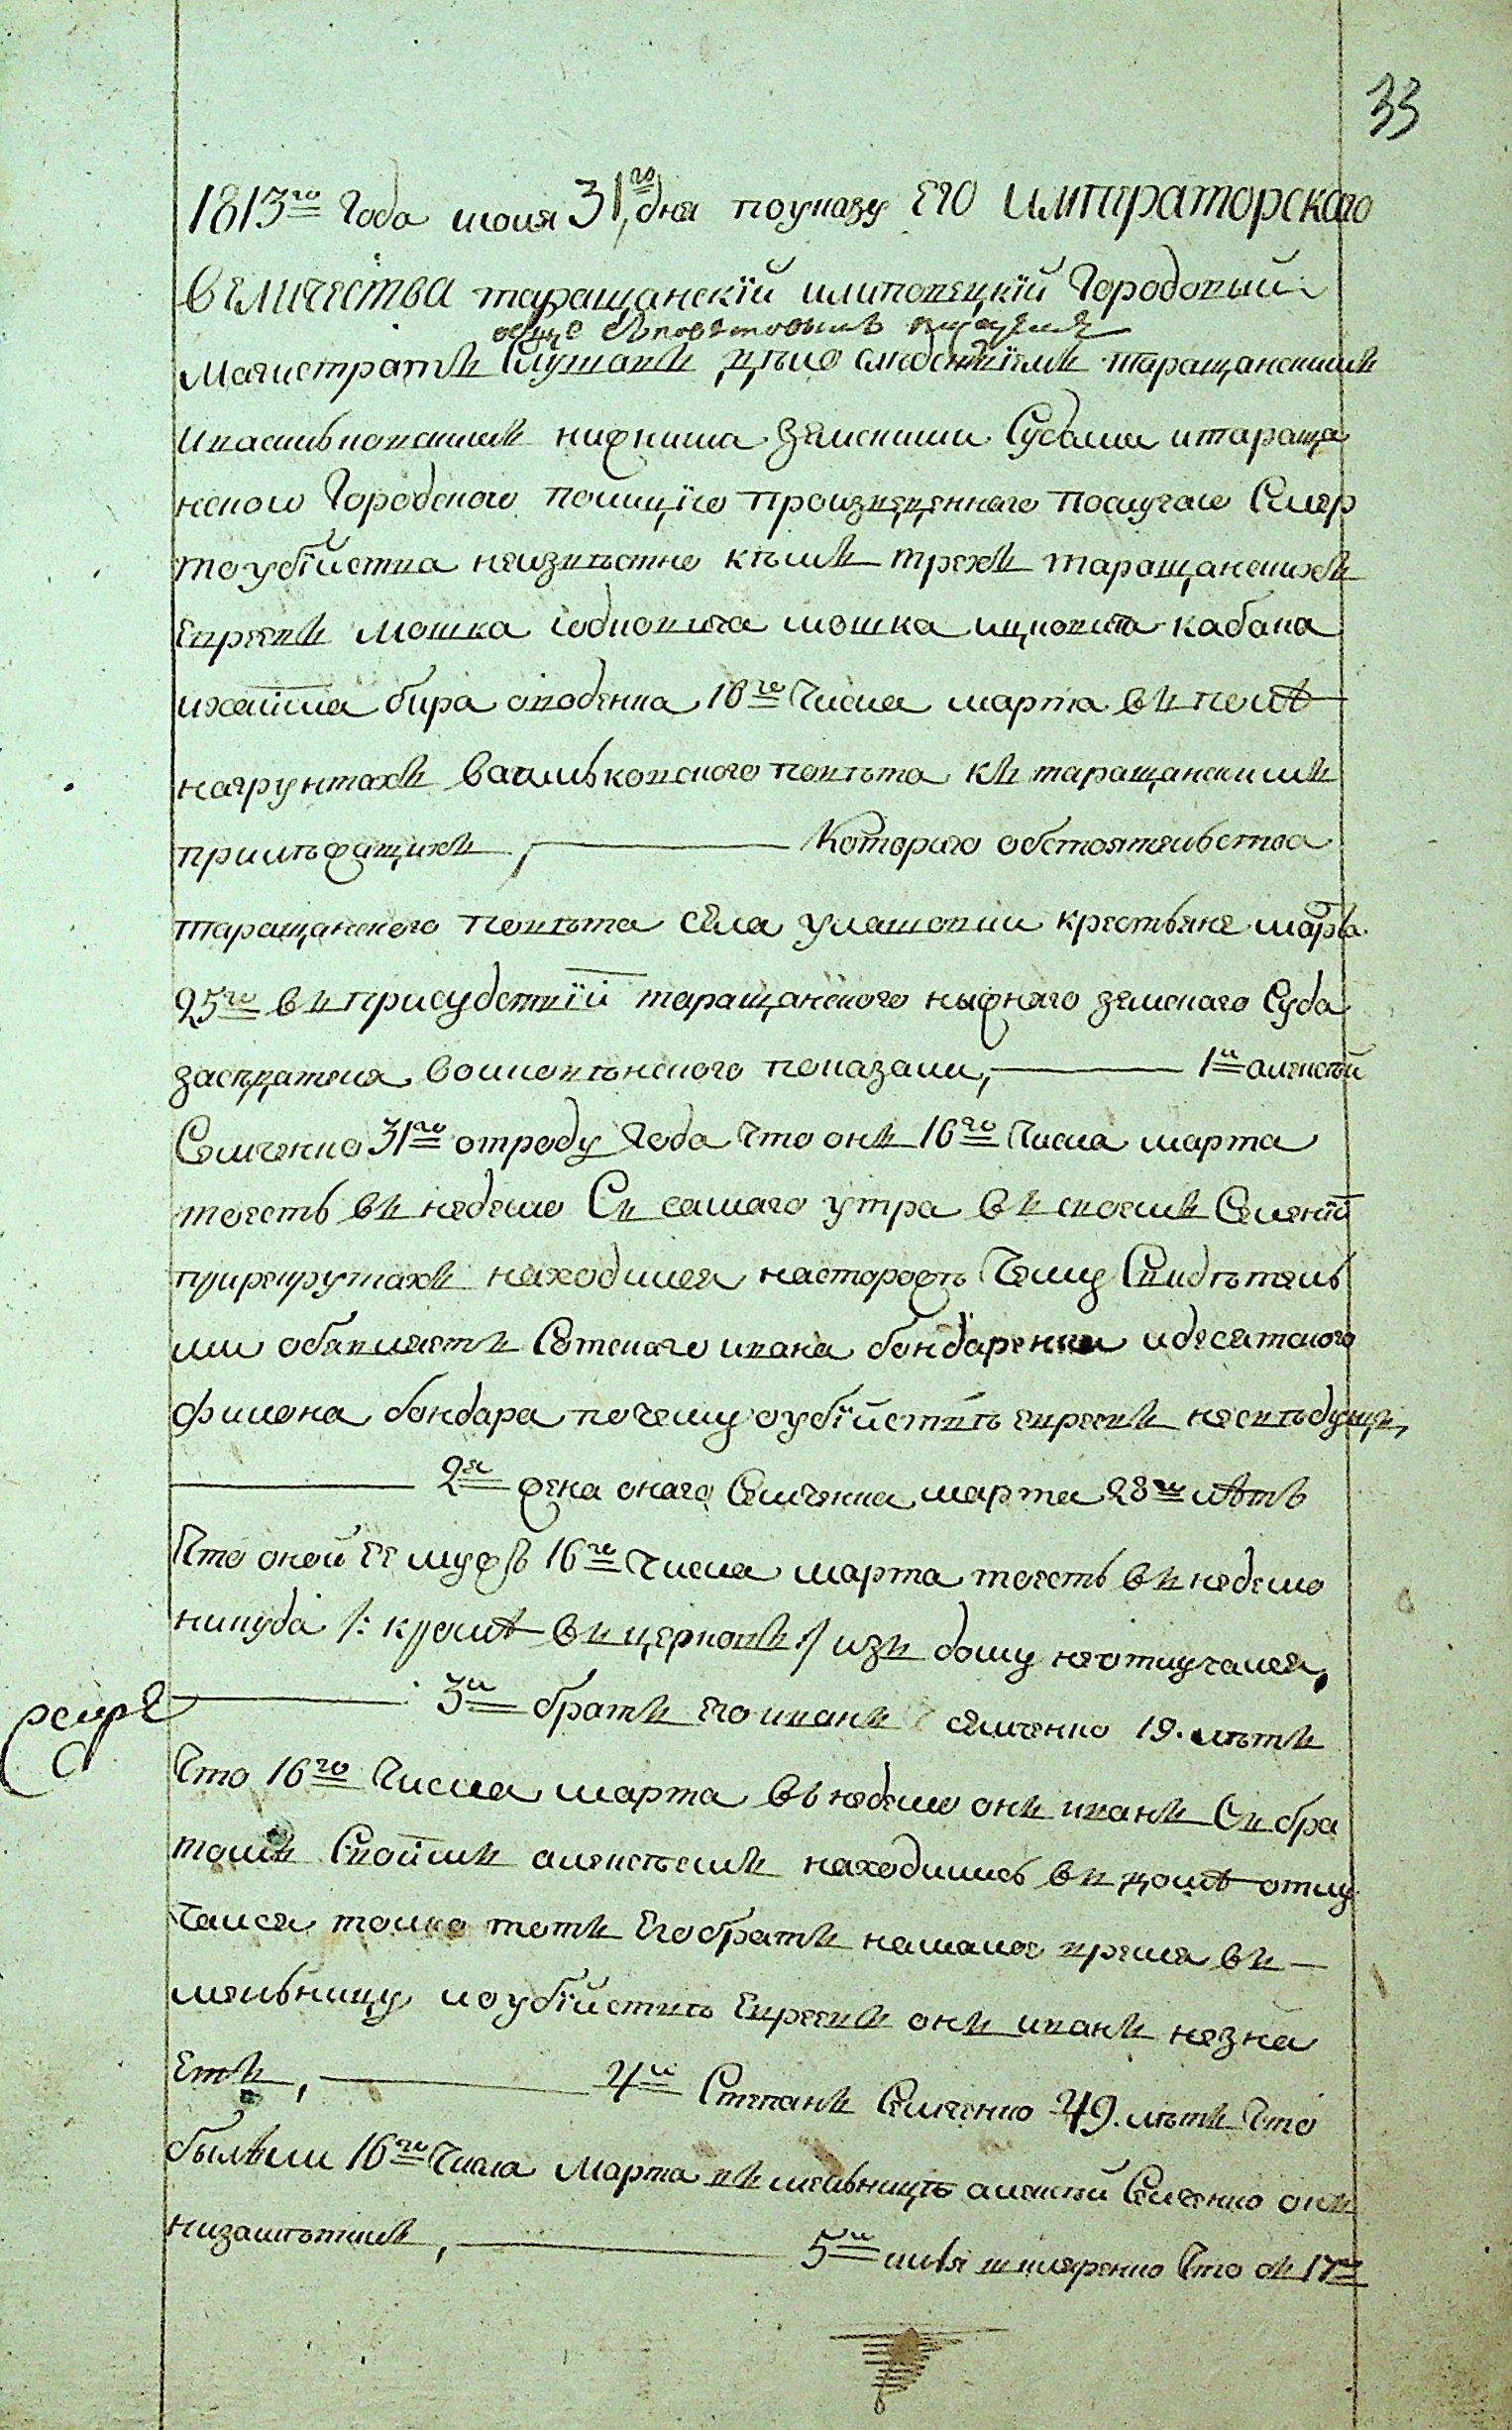 33
1813го Года июля 31го дня поуказу ЕГО ИМПЕРАТОРСКАГО
ВЕЛИЧЕСТВА таращанскїй илиповецкїй Городовый
обще съ поветовымъ
Магистратъ Слушавъ дѣло следствїемъ таращанскимъ
ивасильковскимъ нижнима Земскими Судами итараща
нскою Городскою полицїею произведенного послучаю Смер
тоубїйства неизвѣстно кѣмъ трехъ таращанскихъ
Евреевъ мошка мошка ицковича кабана
ихаима бира споденка 16го Числа марта въ полѣ
нагрунтахъ васильковского повѣта къ таращанскимъ
прилѣжащихъ, Которого обстоятельства
таращанского повѣта села улашовки крестьяне марта
25го въ присудствїй таращанского нижняго земскаго Суда
засѣдателя показали, 1й алексѣй
Семченко 31го отроду Года что онъ 16го Числа марта
тоесть въ неделю Съ самаго утра въ своемъ Селенїй
прирекрутахъ находился насторожѣ Чему Свидѣтель
ми обявляетъ Сотскаго ивана бондаренка идесятского
филона бондара почему оубїйствѣ евреевъ несвѣдущъ,
2я жена онаго Семченка марта 28м лѣтъ
Что оной ее мужъ 16го Числа марта тоесть въ неделю
никуда /: кромѣ въ церковъ :/ изъ дому неотлучался,
3й братъ его иванъ семченко 19. лѣтъ
Что 16го Числа марта въ неделю онъ иванъ Съ бра
томъ Своимъ алексѣемъ находились въ домѣ отлу
чался толко тотъ Его братъ намалое время въ
мельницу иоубїйствѣ Евреевъ онъ иванъ незна
Етъ, 4й Степанъ Семченко 49. лѣтъ Что
былъли 16го Числа Марта въ мельницѣ алексѣй Семченко онъ
незаметилъ, 5й илья шкляренко Что съ 17го